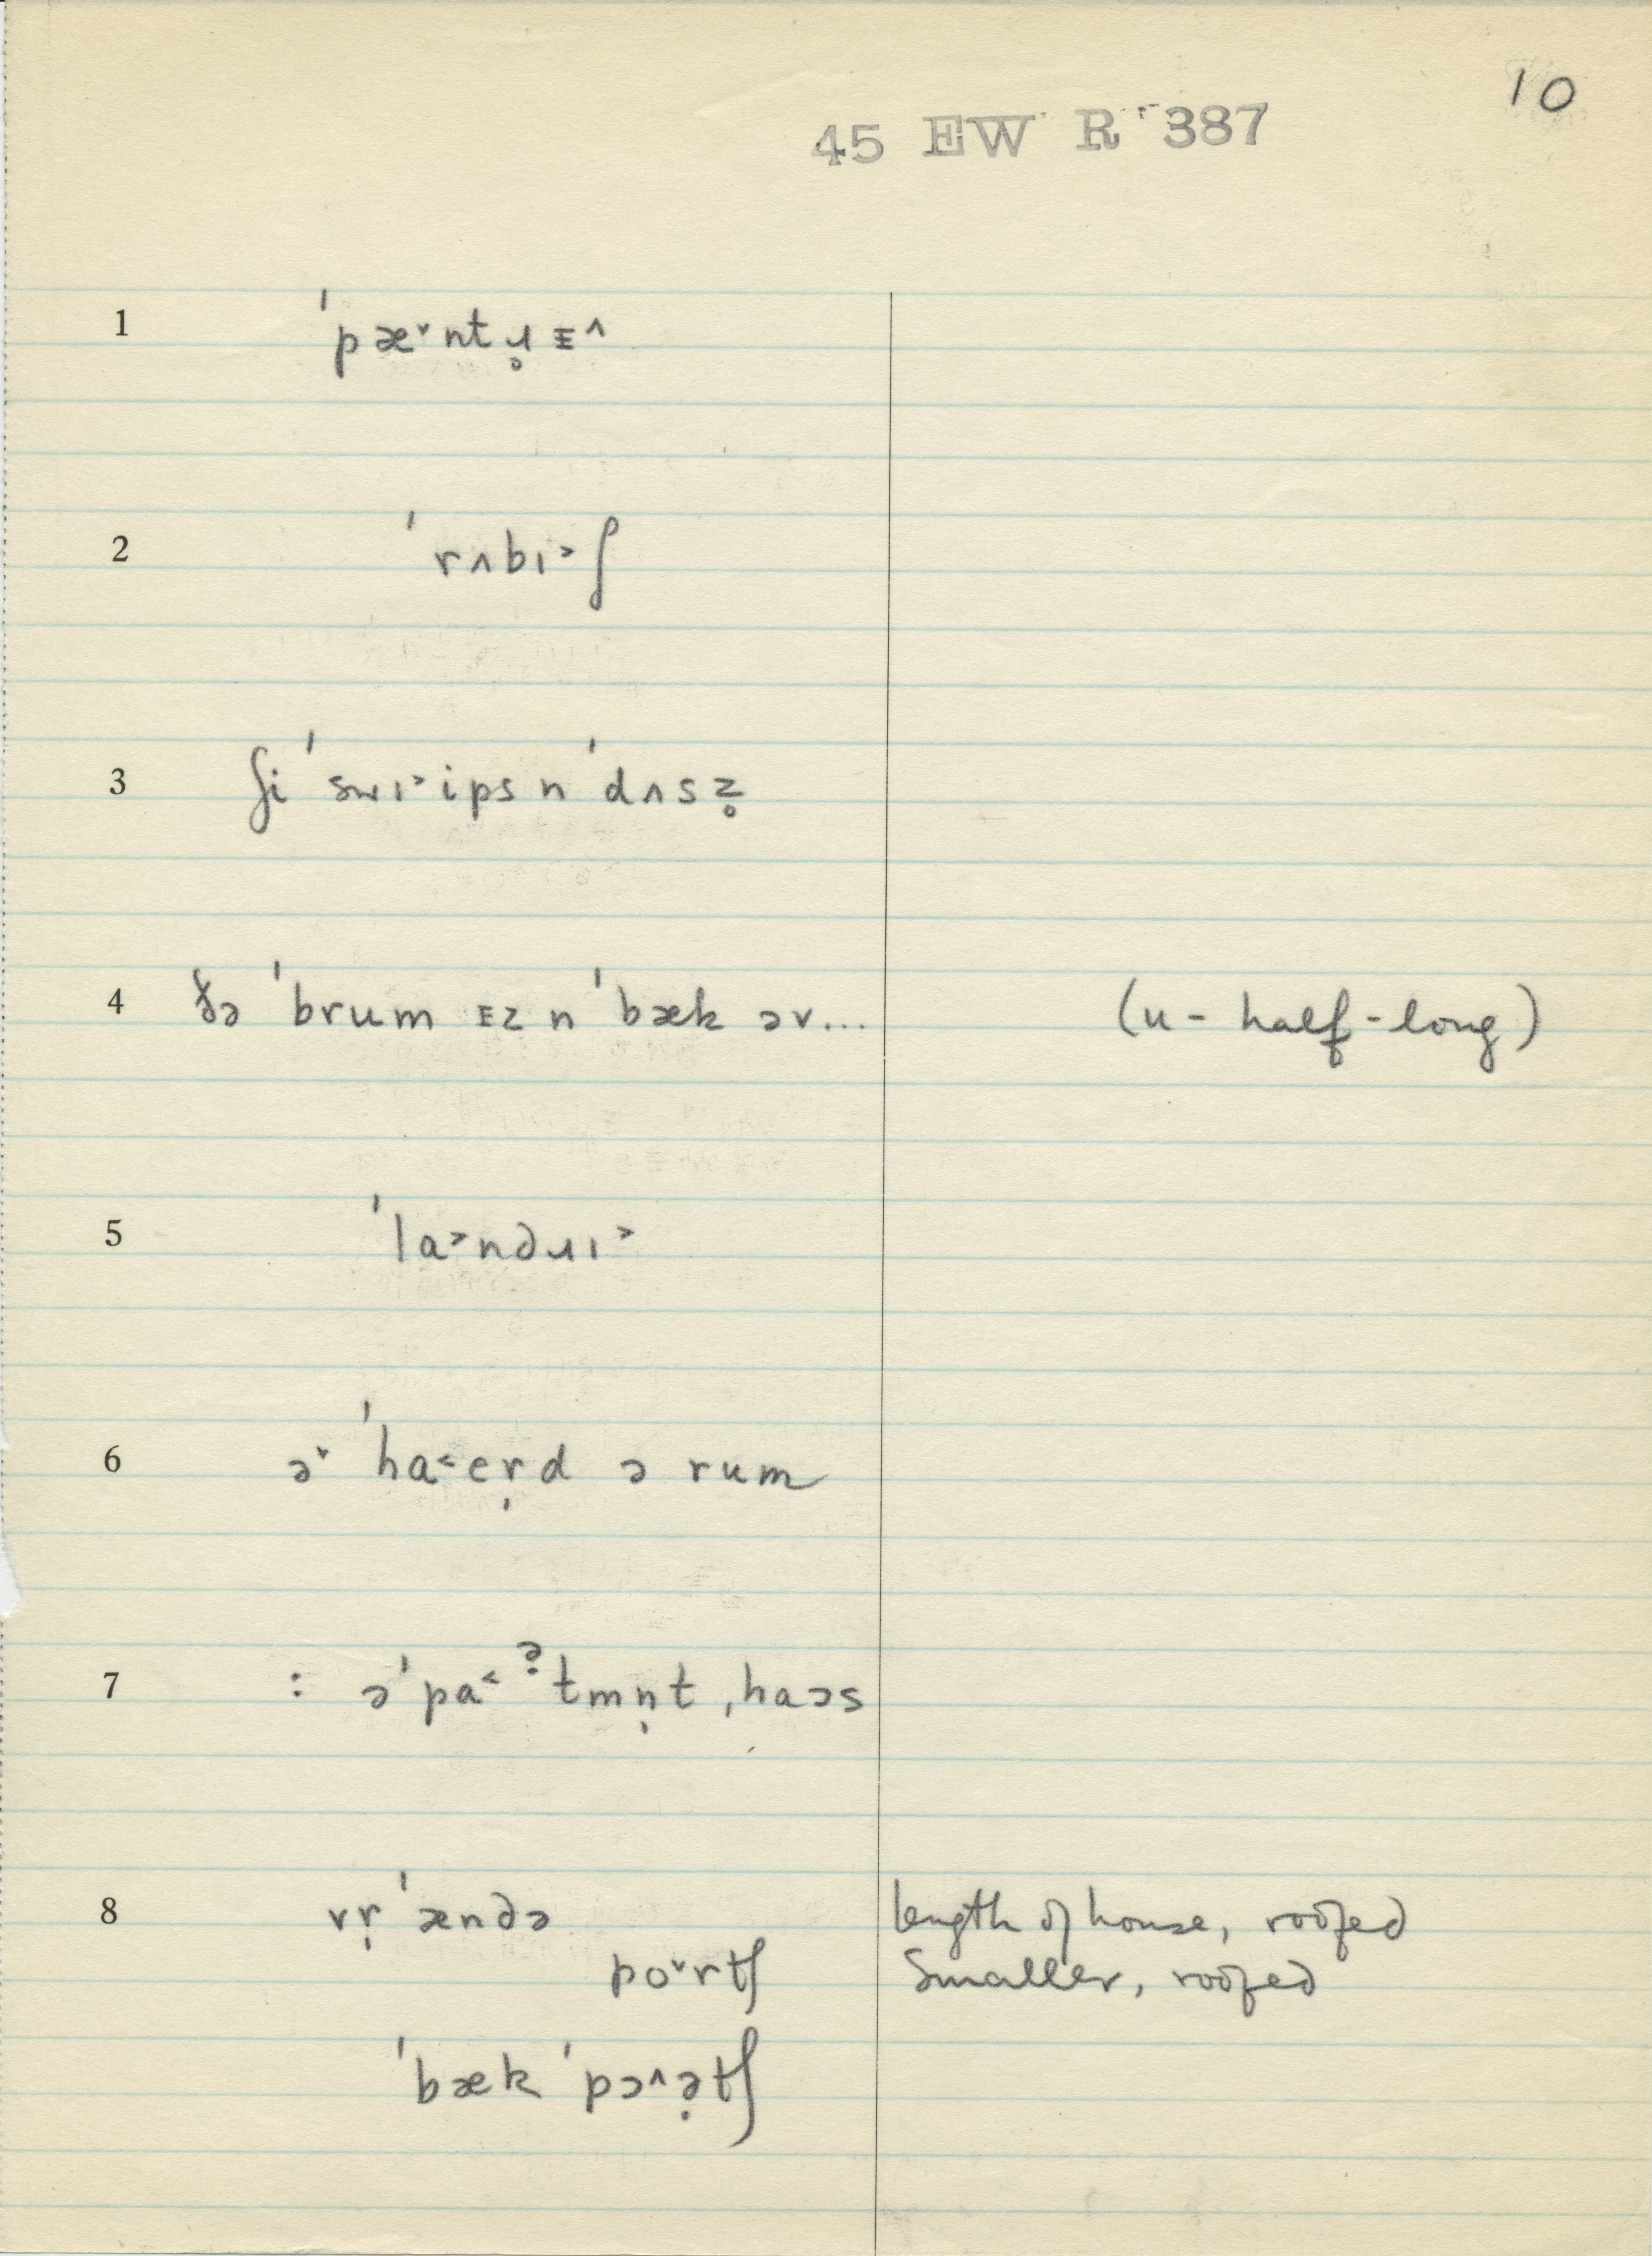 10
45 EW R 387
1 ˈpæ˅ntɹ̥ᴇ˄
2 ˈrʌbɪ˃ʃ
3 ʃi ˈswɪ˃ips n ˈdʌsz̥
4 ðə ˈbrum ᴇz n ˈbæk əv... (u - half-long)
5 ˈla˃ndɹɪ˃
6 ə˅ ˈha˂er̩d ə rum
7 : əˈpa˂ ə̣tmn̩t ˌhaɔs
8 vr̩ˈændə length of house, roofed
po˅rtʃ Smaller, roofed
ˈbæk ˈpɔ˄ə̣tʃ